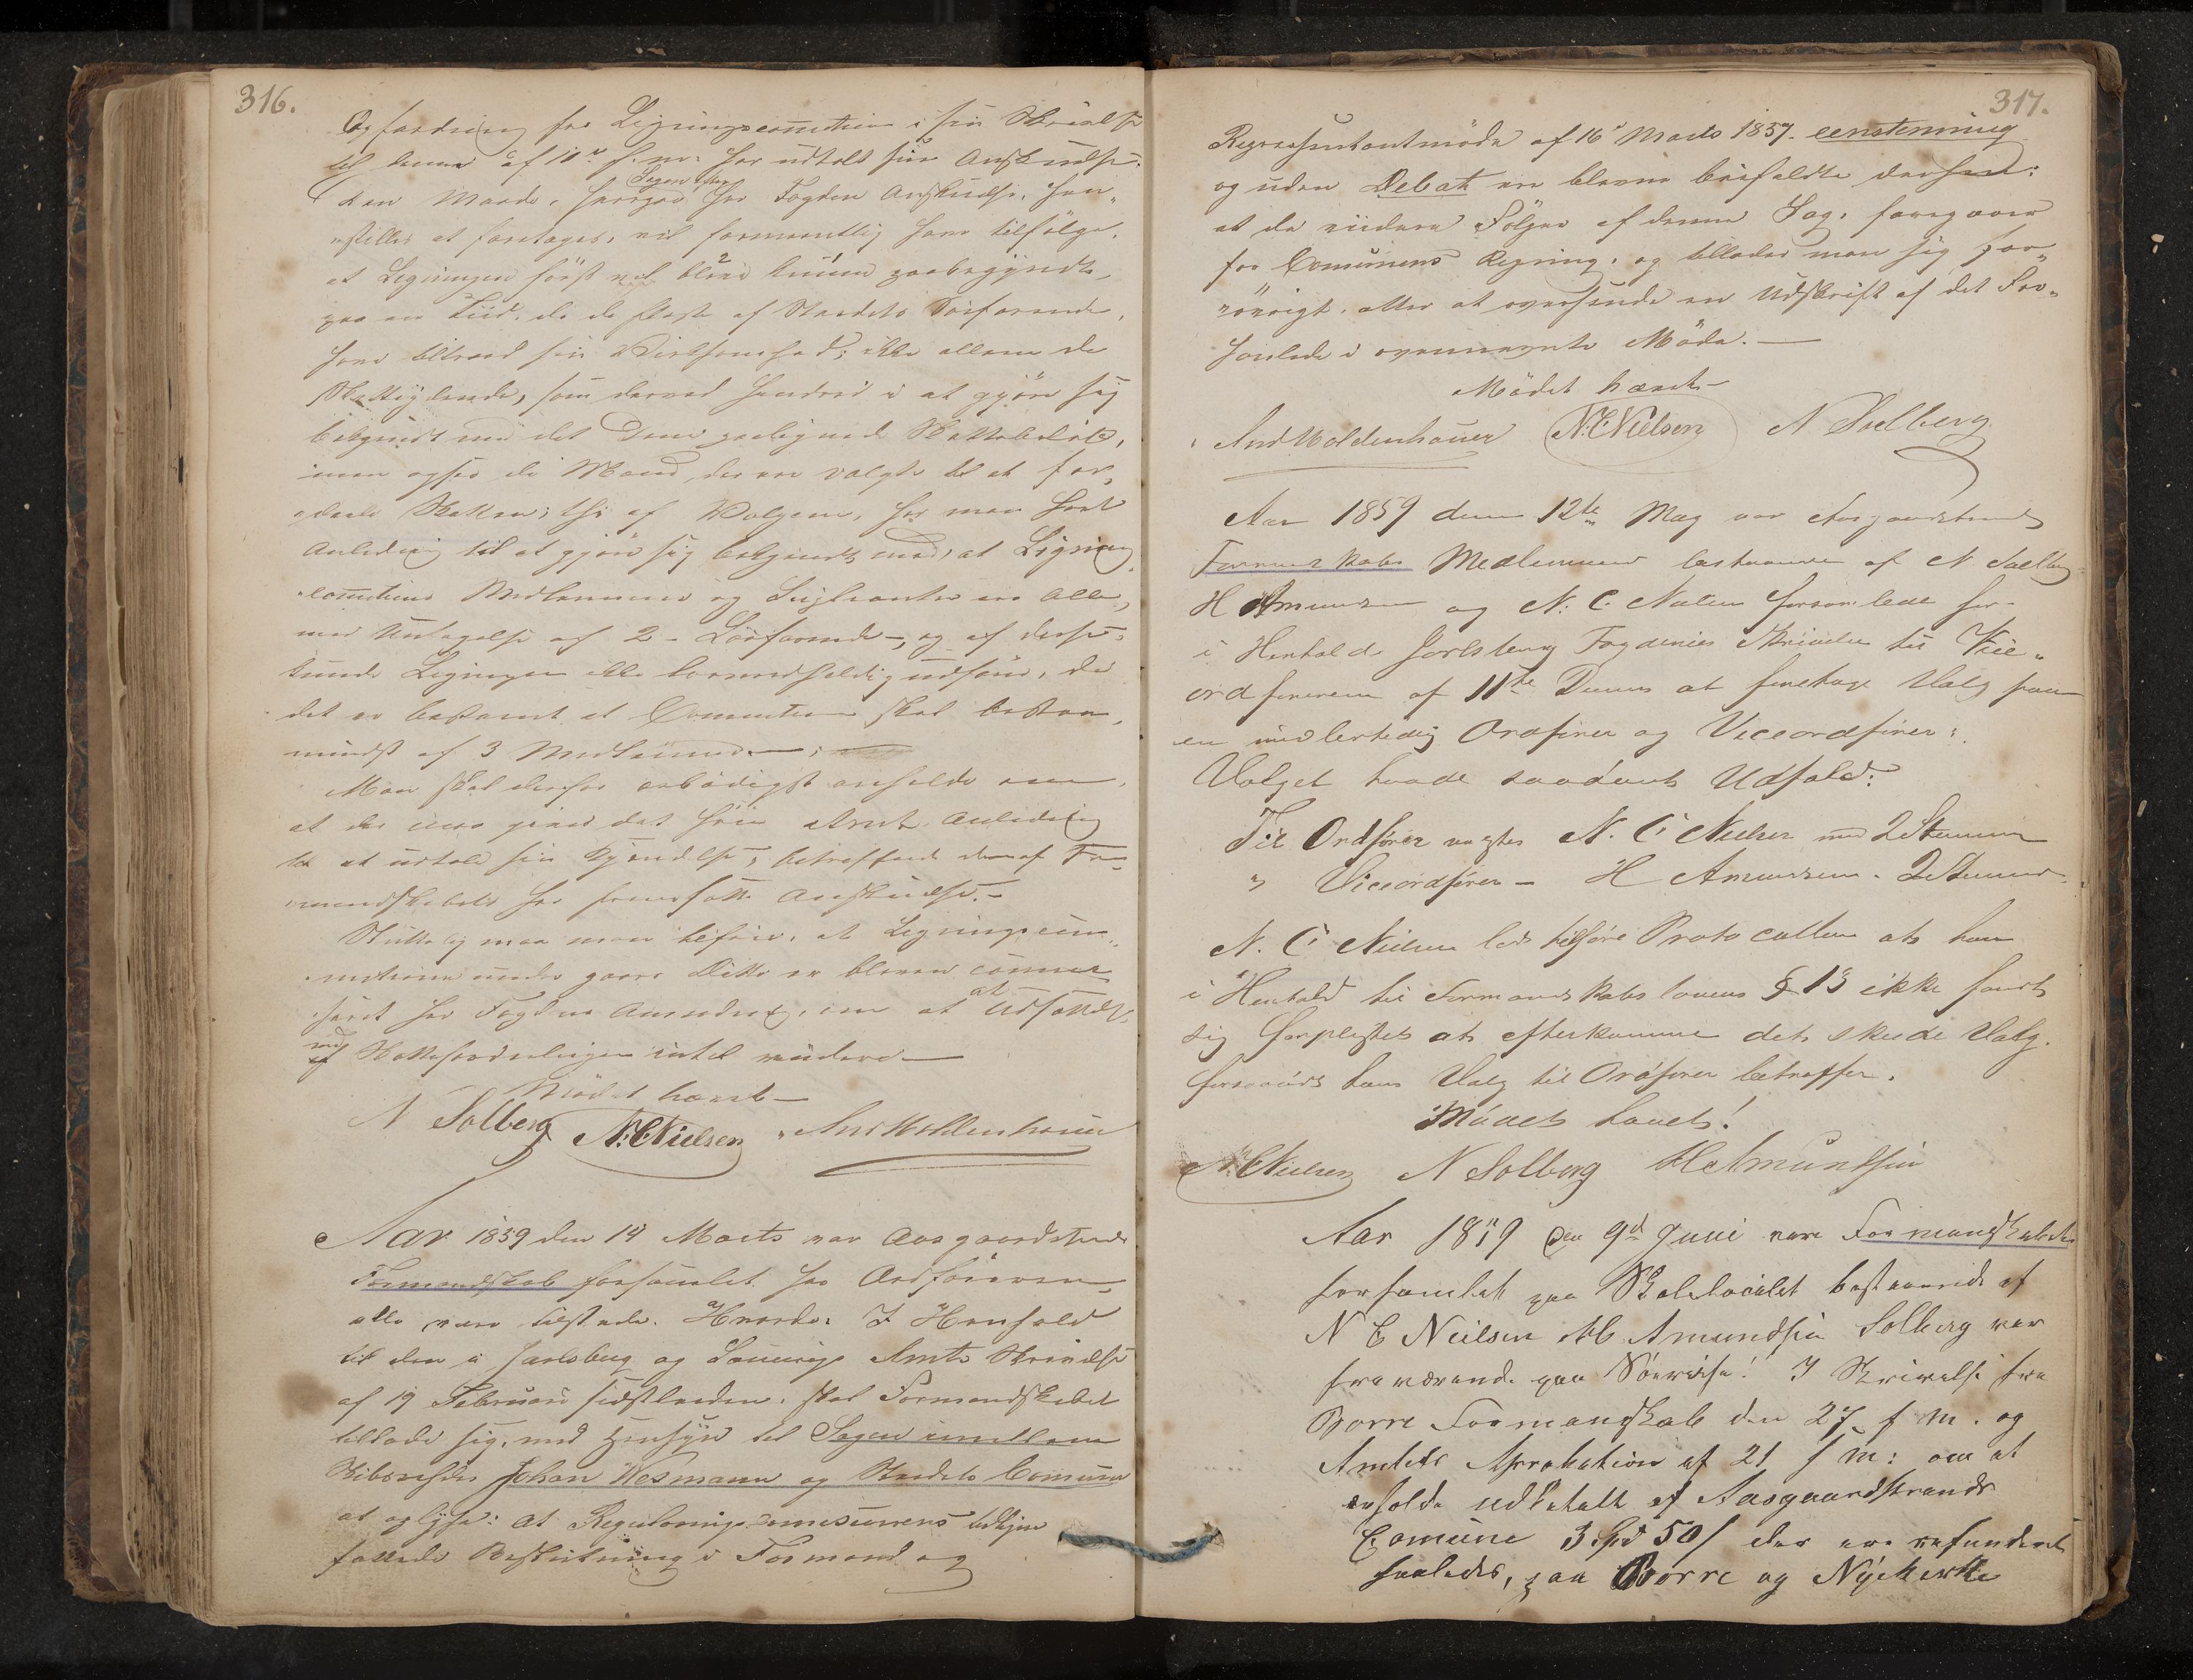 316.
Opfordring fra Ligningscomiteen i sin Skrivelse
til denne af 10de f. m. har udtalt sin Anskuelse.
Den Maade, hvorpaa Sagen efter Fogdens Anskuelse, hen-
stilles at foretages, vil formentlig have tilfølge,
at Ligningen først vil blive kunne paabegyndt
paa en Tiid, da de fleste af Stedets Søefarende,
have tiltraad sin Virksomhed; ikke allene de
Skatydende, som derved hindres i at gjøre sig
bekjendt med det Dem paalignede Skattebeløb,
men ogsaa de Mænd, der ere valgte til at for-
dele Skatten; thi af Valgene, har man havt
Anledning til at gjøre sig bekjendt med, at Lignings
comiteens Medlemmer og Supleanter ere Alle,
med Undtagelse af 2 - Søefarende -, og af disse
kunde Ligningen ikke udføres, da
det er bestemt at Comiteen skal bestaa
mindst af 3 Medlemmer;
Man skal derfor ærbødigst anholde om
at der maa gives det høie Amt Anledning
til at udtale sin Kjendelse, betræffende den af For-
mandskabet her fremsatte Anskuelse. -
Sluttelig maa man tilføie, at Ligningscom-
miteen under Dette er bleven
har Fogdens om at Udsættelse
med Skattefordelingen intil videre
Mødet hævet -
N Solberg N: C Nielsen And Moldenhauer
Aar 1859 den 14 Marts var Aasgaardstrands
Formandskab forsamlet hos Ordføreren
alle vare tilstede. Hvorda: I Henhold
til den i Jarlsberg og Laurvigs Amts Skrivelse
af 19 Februari sidstleden, skal Formandskabet
tillade sig, med Hensyn til Sagen imellem
Skibsreder Johan Wesmann og Stedets Comune
at oplyse: at Reguleringscomisionens
fattede Beslutning i Formand og
317.
Repræsentantmøde af 16de Marts 1857. eenstemmig
og uden Debat ere blevne bifaldte
at de videre Følger af denne Sag, foregaaer
for Comunens Regning, og tillader man sig for-
øvrigt, atter at oversende en Udskrift af det For-
handlede i ovennævnte Møde. -
Mødet hævet -
And Moldenhauer N: C Nielsen N Solberg
Aar 1859 den 12te May var Aasgaardstrands
Formandskabs Medlemmer bestaaende af N Solberg
H Amunsen og N: C. Nielsen forsamlede for
i Henhold Jarlsberg Fogderies Skrivelse til Vice-
ordføreren af 11te Dennes at foretage Valg paa
en midlertidig Ordfører og Viceordfører:
Valget havde saadant Udfald:
Til Ordfører valgtes N. C. Nielsen med 2 Stemmer
" Viceordfører - H Amunsen - 2 Stemmer
N. C. Nielsen lod tilføre Protocollen at han
i Henhold til Formandskabs lovens § 13 ikke fandt
sig forpligtet at efterkomme det skeede Valg.
forsaavidt hans Valg til Ordfører betræffer.
Mødet hævet!
N: C Nielsen N Solberg H Amundsen
Aar 1859 den 9de Juni vare Formandskabet
forsamlet paa Skolelocalet bestaaende af
N C Neilsen H Amundsen Solberg var
fraværende paa Søereise! I Skrivelse fra
Borre Formandskab den 27 f M. og
Amtets Aprobation af 21 f M: om at
erholde udbetalt af Aasgaardstrands
Comune 3 Spd 50 / der ere refunderet
saaledes, paa Borre og Nykirke